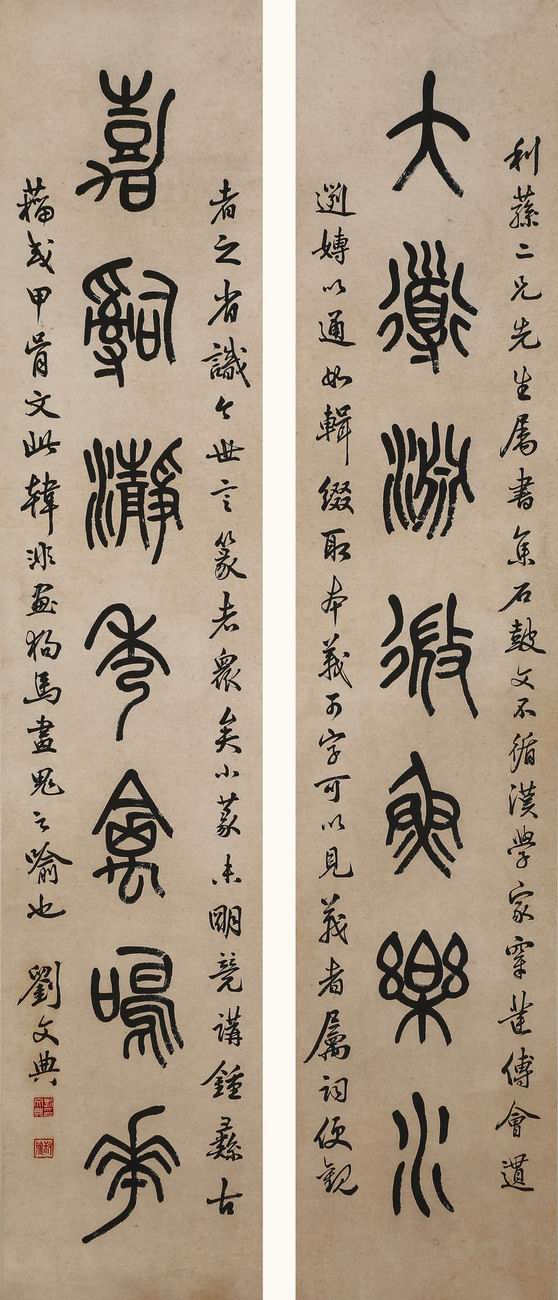 利蓀二兄先生屬書集石鼓文不循漢學家穿鑿傅會
大道淵微魚樂水
以通如輯綴取本義字可以見義者屬詞便觀
者之省識今世言篆者眾矣小篆未明競講鍾彝古
嘉辭瀞秀禽鳴華
籀或甲骨文此韓非畫狗馬畫鬼之喻也 劉文典